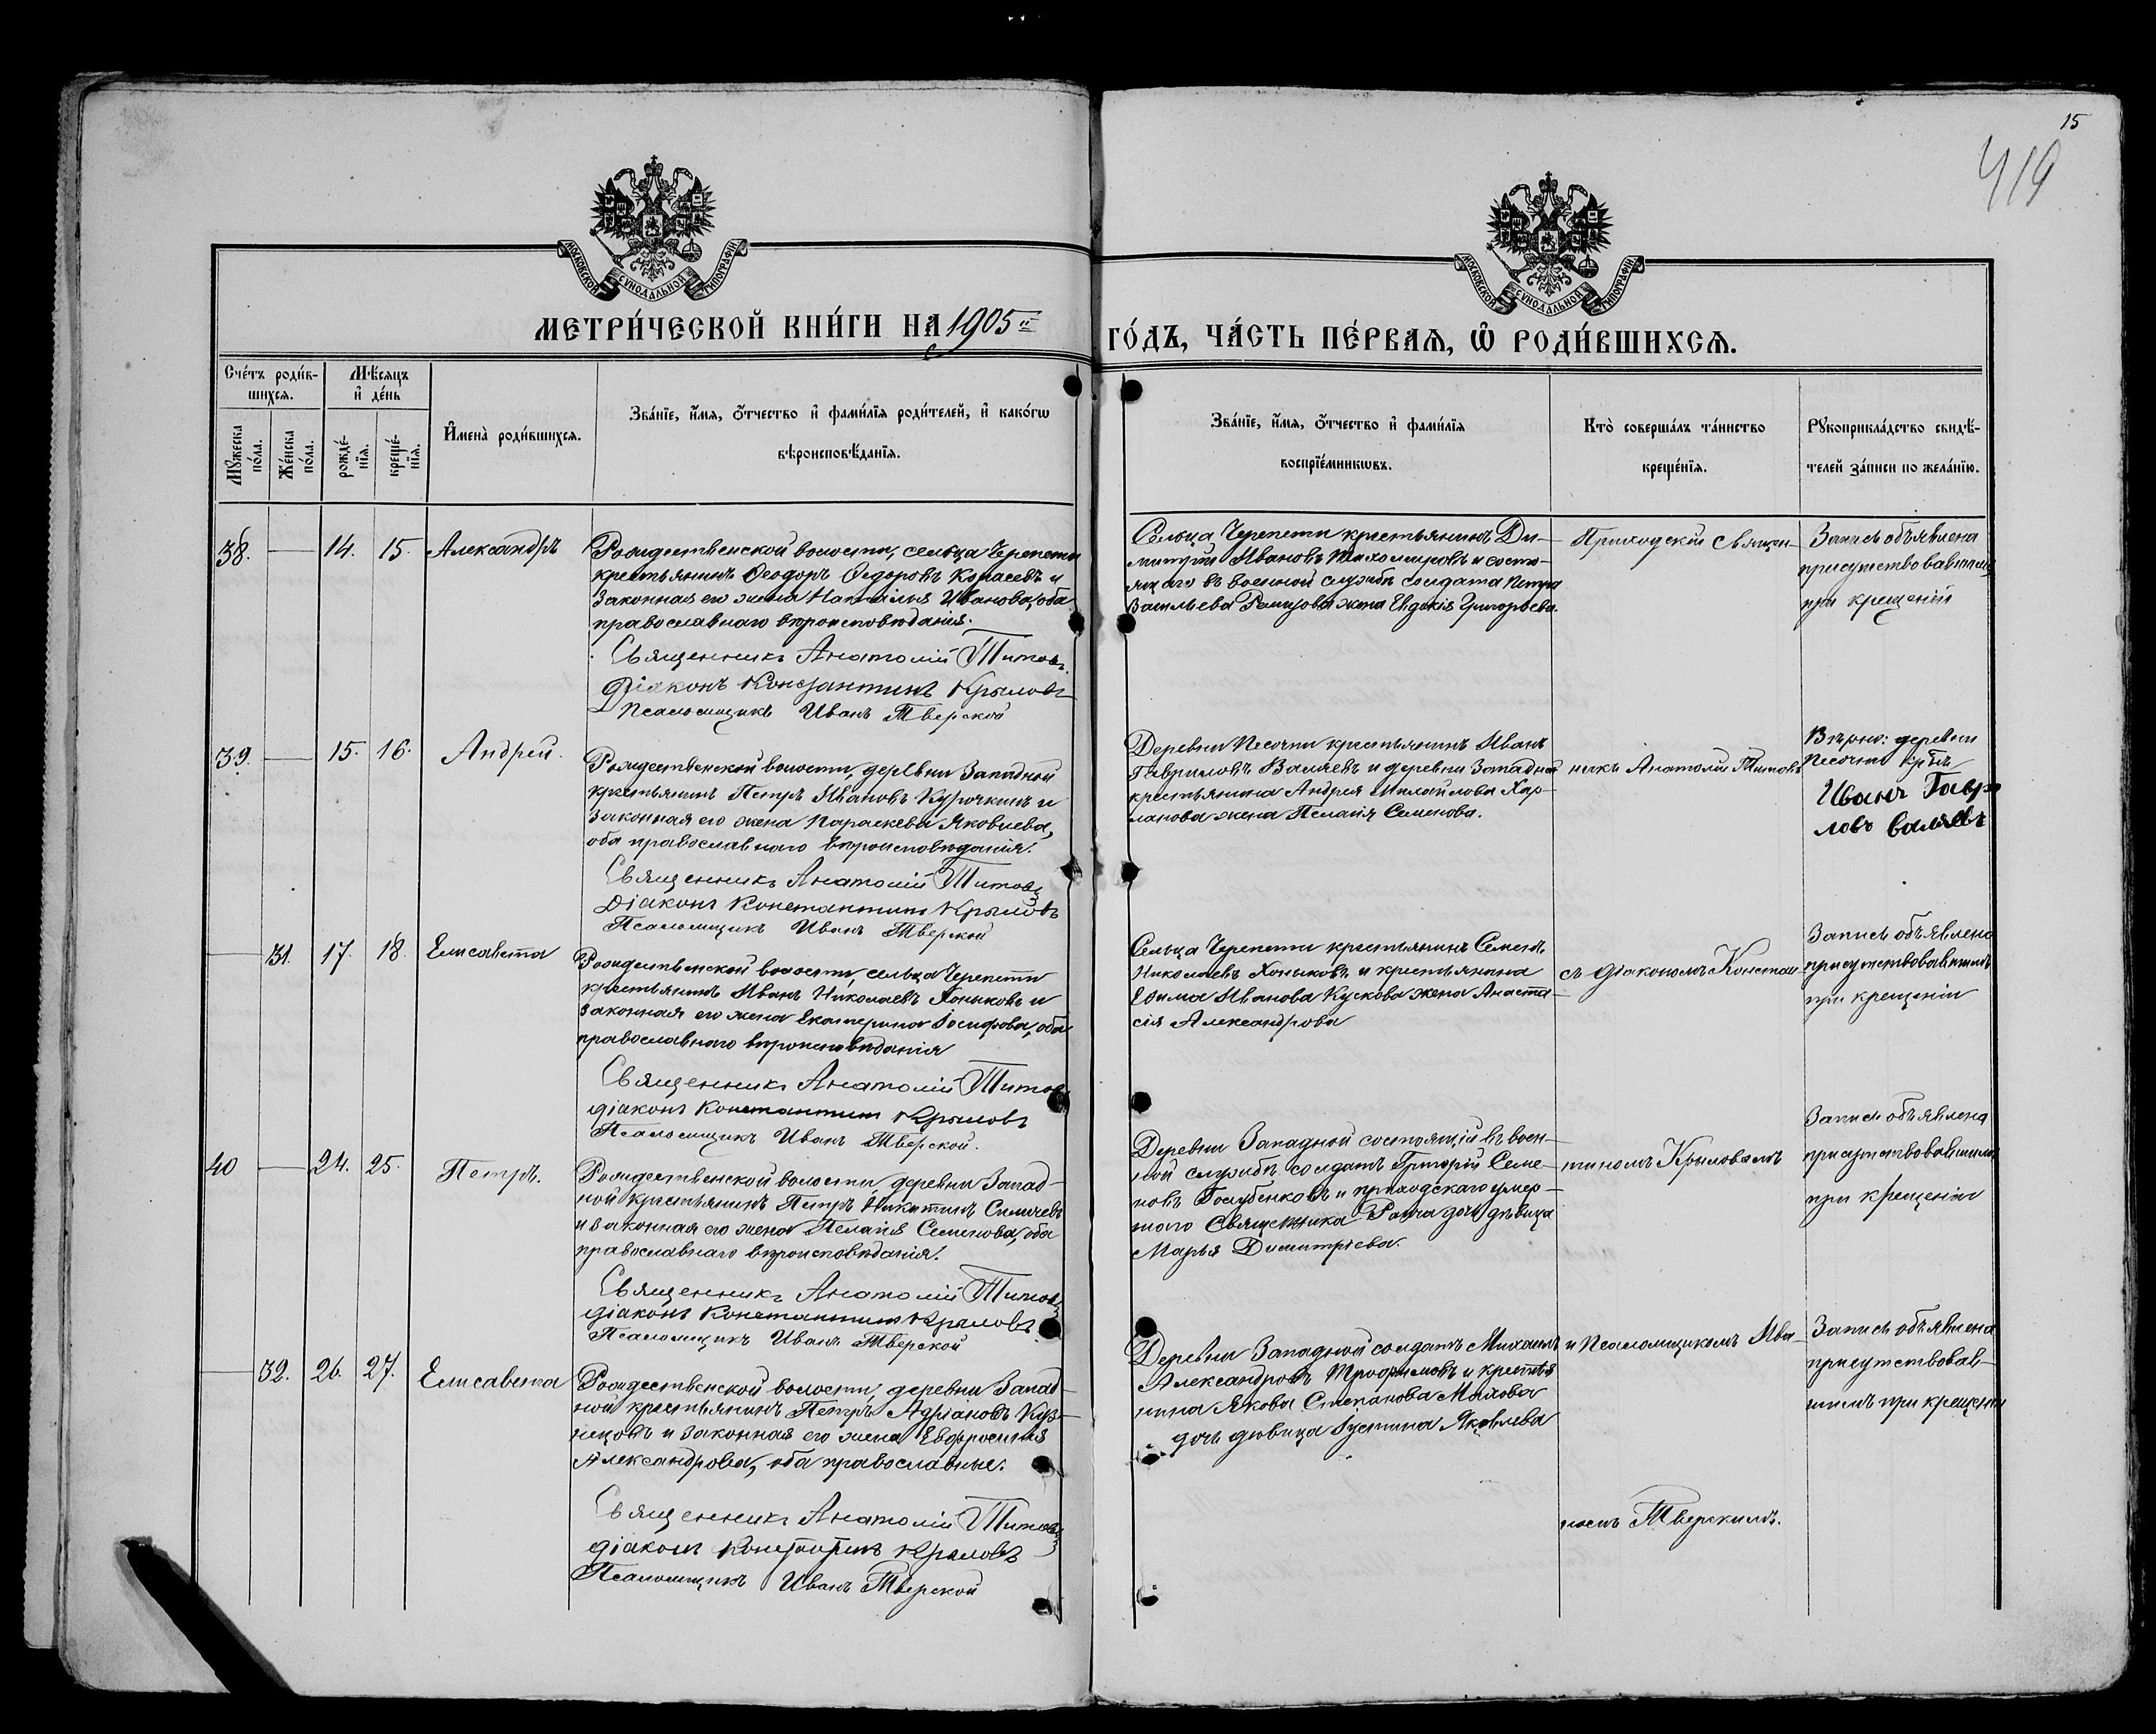 15
419
МОСКОВСКОЙ СУНОДАЛЬНОЙ ТИПОГРАФІИ
МОСКОВСКОЙ СУНОДАЛЬНОЙ ТИПОГРАФІИ
МЕТРИ́ЧЕСКОЙ КНИ́ГИ НА 1905 й
ГО́ДЪ, ЧА́СТЬ ПЕ́РВАѦ, Ѽ РОДИ́ВШИХСѦ.
Сче́тъ роди́в-
шихсѧ.
Мѣ́сѧцъ
и҆ де́нь
Мꙋ́жеска по́ла.
Же́нска по́ла.
рожде́-нїѧ.
креще́-нїѧ.
И҆мена̀ роди́вшихсѧ.
Зва́нїе, и҆́мѧ, ѻ҆́тчество и҆ фами́лїѧ роди́телей, и҆ како́гѡ
вѣроисповѣ́данїѧ.
Зва́нїе, и҆́мѧ, ѻ҆́тчество и҆ фами́лїѧ
воспрїе́мникѡвъ.
Кто̀ соверша́лъ та́инство
креще́нїѧ.
Рꙋкоприкла́дство свидѣ́-
телей за́писи по жела́нїю.
38. — 14. 15. Александръ
Рождественской волости, сельца Черепети
крестьянинъ Ѳеодоръ Ѳедоровъ и
законная его жена Наталья Иванова, оба
православнаго вѣроисповѣданія.
Священникъ Анатолій Титовъ
Діаконъ Константинъ Крыловъ
Псаломщикъ Иванъ Тверской
Сельца Черепети крестьянинъ Ди-
митрій Ивановъ Тихомировъ и состо-
ящаго въ военной службѣ солдата Петра
Васильева Ремизова жена Евдокія Григорьева.
Приходскій Священ-
Запись объявлена
присутствовавшимъ
при крещеніи
39. — 15. 16. Андрей.
Рождественской волости, деревни Западной
крестьянинъ Петръ Ивановъ Курочкинъ и
законная его жена Параскева Яковлева,
оба православнаго вѣроисповѣданія.
Священникъ Анатолій Титовъ
Діаконъ Константинъ Крыловъ
Псаломщикъ Иванъ Тверской
Деревни Песочни крестьянинъ Иванъ
Гавриловъ Валяевъ и деревни Западной
крестьянина Андрея Михайлова Хар-
ланова жена Пелагія Семенова.
никъ Анатолій Титовъ
Вѣрно: деревни
Песочни
Иванъ Гаври
ловъ валяевъ
— 31. 17. 18. Елисавета
Рождественской волости, сельца Черепети
крестьянинъ Иванъ Николаевъ Хоныковъ и
законная его жена Екатерина Іосифова, оба
православнаго вѣроисповѣданія
Священникъ Анатолій Титовъ
діаконъ Константинъ Крыловъ
Псаломщикъ Иванъ Тверской.
Сельца Черепети крестьянинъ Семенъ
Николаевъ Хоныковъ и крестьянина
Ефима Иванова Кускова жена Анаста-
сія Александрова
съ діакономъ Констан-
Запись объявлена
присутствовавшимъ
при крещеніи
40 — 24. 25. Петръ.
Рождественской волости деревни Запад-
ной крестьянинъ Петръ Никитинъ
и законная его жена Пелагія Семенова, оба
православнаго вѣроисповѣданія.
Священникъ Анатолій Титовъ
діаконъ Константинъ Крыловъ
Псаломщикъ Иванъ Тверской
Деревни Западной состоящій въ воен-
ной службѣ солдатъ Григорій Семе-
новъ Голубенковъ и приходскаго умер-
шаго Священника дочь дѣвица
Марья Димитріева.
тиномъ Крыловымъ
Запись объявлена
присутствовавшимъ
при крещеніи
— 32. 26. 27. Елисавета
Рождественской волости, деревни Запад-
ной крестьянинъ Петръ Адріановъ Куз-
нецовъ и законная его жена Евфросинія
Александрова, оба православные.
Священникъ Анатолій Титовъ
діаконъ Константинъ Крыловъ
Псаломщикъ Иванъ Тверской
Деревни Западной солдатъ Михаилъ
Александровъ Трофимовъ и крестья
нина Якова Степанова
дочь дѣвица Іустина Яковлева
и Псаломщикомъ Ива-
номъ Тверскимъ.
Запись объявлена
присутствовав-
шимъ при крещеніи